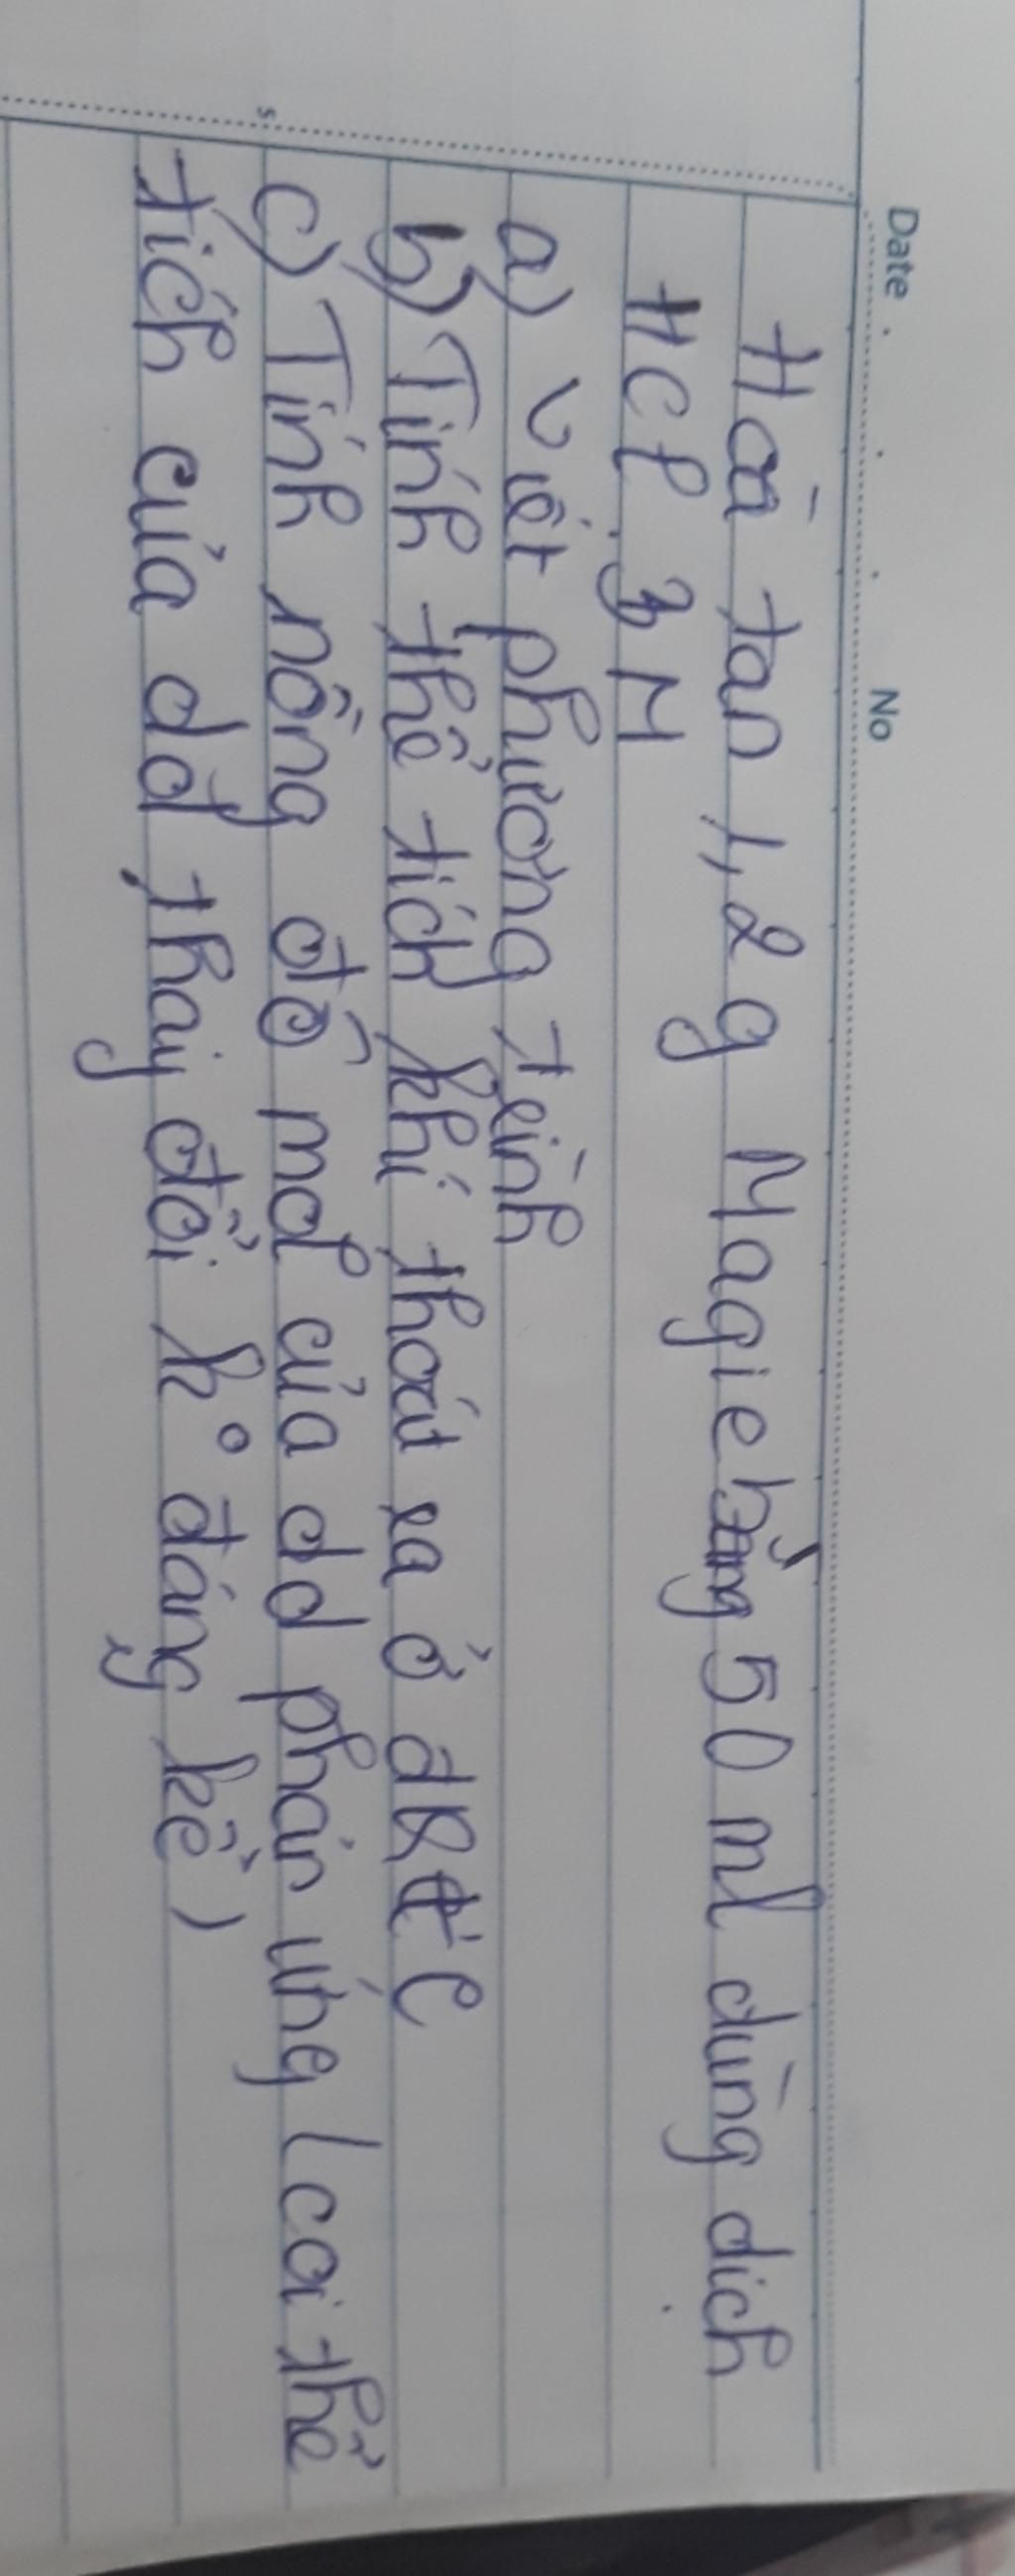 Date No
Hoà tan 1,2g Magie bằng 50 ml dùng dich
HCl 3 M
a) Viết phương trình
b) Tính thể tích khí thoát ra ở đktc
c) Tính nồng độ mol của dd phản ứng (coi thể
tích của dd thay đổi k° đáng kể)
5